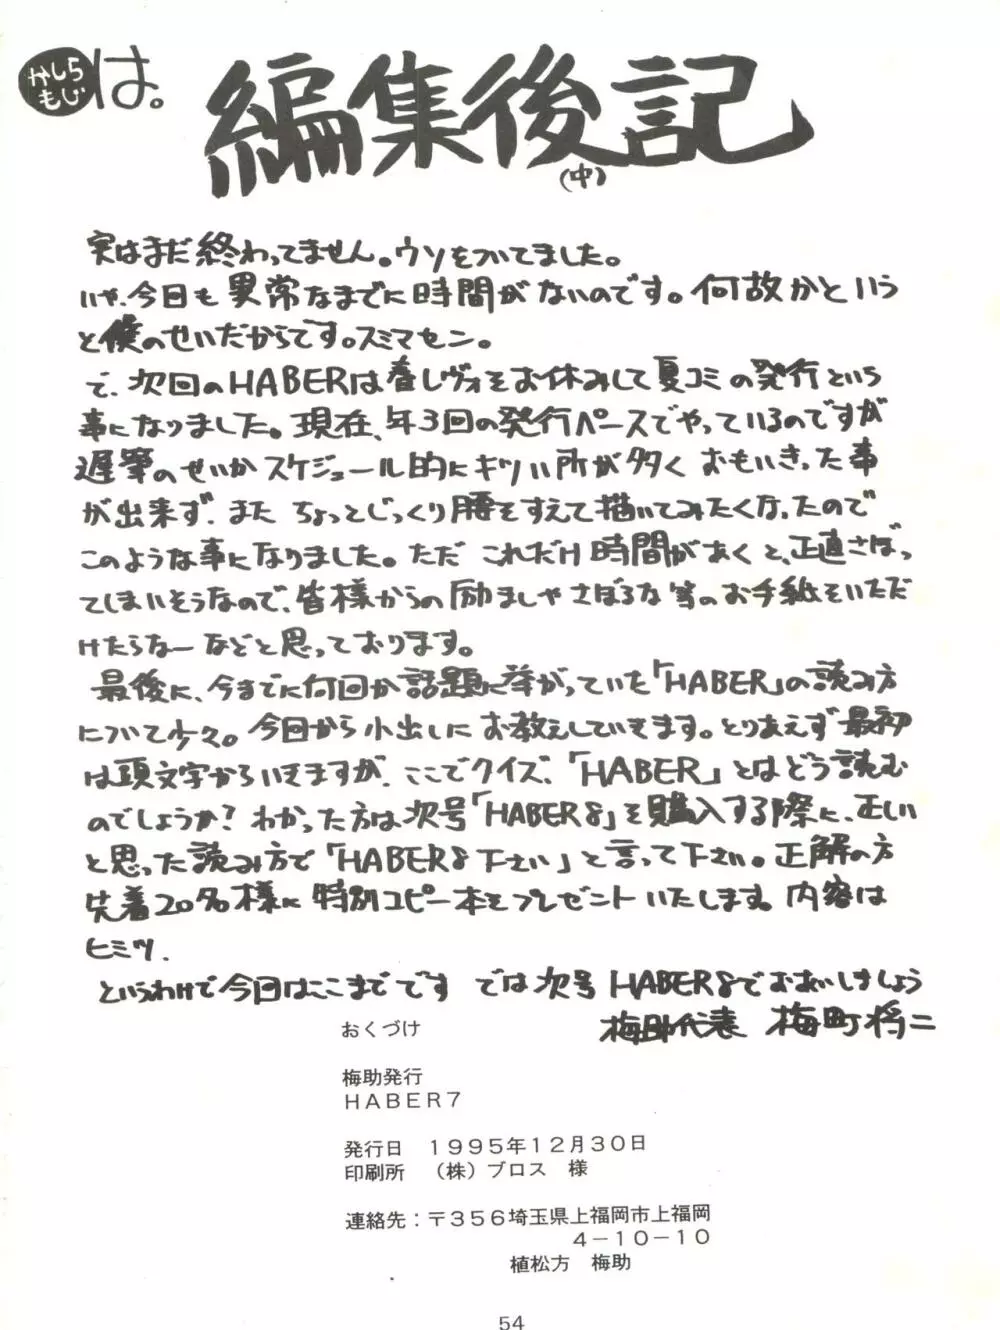 かしら
もじ
は。
編集後記
(中)
実はまだ終わってません。ウソをついてました。
いや、今日も異常なまでに時間がないのです。何故かという
と僕のせいだからです。スミマセン。
で、次回のHABERは春レヴォをお休みして夏コミの発行という
事になりました。現在、年3回の発行ペースでやっているのですが
遅筆のせいかスケジュール的にキツい所が多くおもいきった事
が出来ず、またちょっとじっくり腰をすえて描いてみたくなったので
このような事になりました。ただこれだけ時間があくと、正直さぼっ
てしまいそうなので、皆様からの励ましやさぼるな等のお手紙をいただ
けたらなーなどと思っております。
最後に、今までに何回か話題に挙がっていた「HABER」の読み方
について少々。今回から小出しにお教えしていきます。とりあえず最初
は頭文字からいきますが、ここでクイズ、「HABER」とはどう読む
のでしょうか?わかった方は次号「HABER8」を購入する際に、正しい
と思った読み方で「HABER8下さい」と言って下さい。正解の方
先着20名様に特別コピー本をプレゼントいたします。内容は
ヒミツ.
というわけで今回はここまでです では次号HABER8でおあいしましょう
梅助代表 梅町将二
おくづけ
梅助発行
HABER7
発行日 1995年12月30日
印刷所 (株)ブロス 様
連絡先:〒356埼玉県上福岡市上福岡
4-10-10
植松方 梅助
54